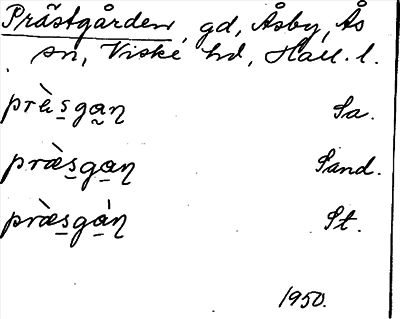 Prästgården, gd, Åsby, Ås
sn, Viske hd, Hall. l.
præ̀s̱ga̰ɳ Sa.
præ̀s̱ga̱ɳ Sand.
præ̀s̱gá̱ɳ St.
1950.